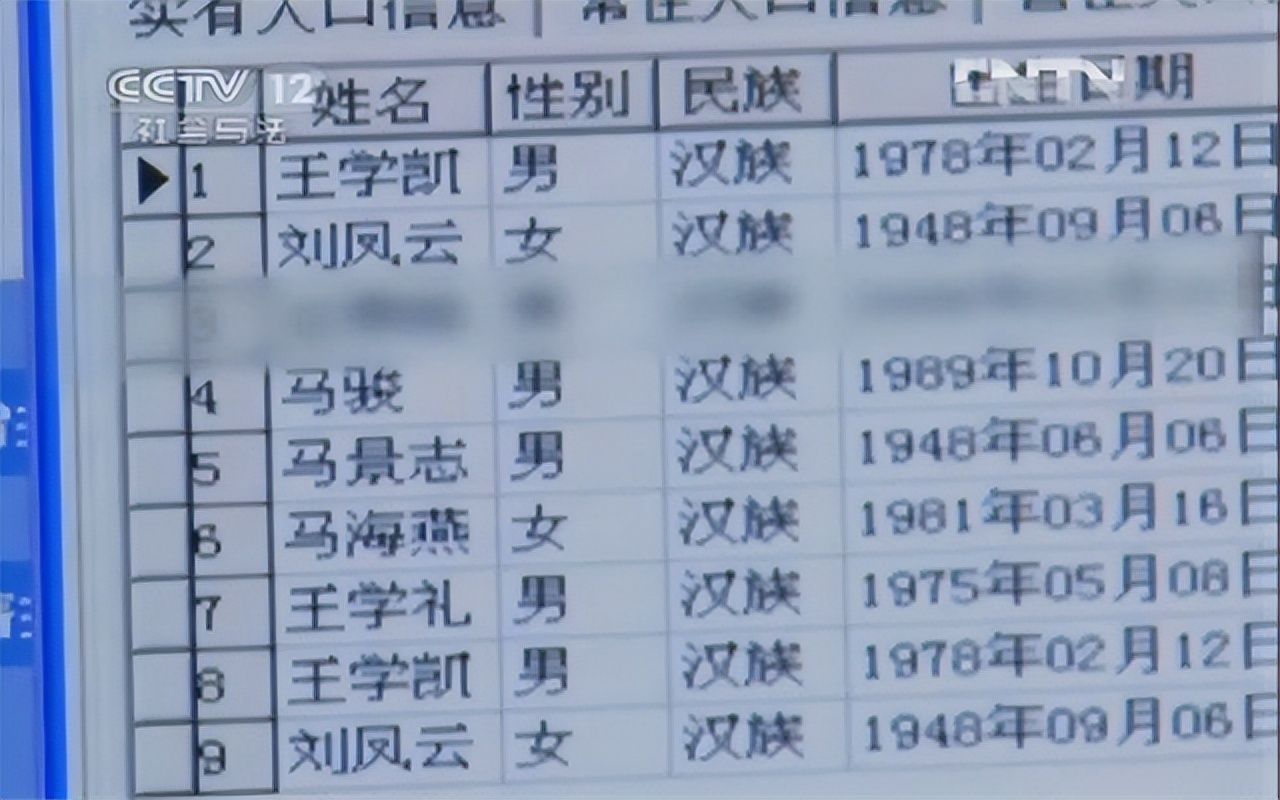 实有人口信息 | 常住人口信息 |
CCTV 12
社会与法
CNTV
姓名 性别 民族 出生日期
1 王学凯 男 汉族 1978年02月12日
2 刘凤云 女 汉族 1948年09月06日
4 马骏 男 汉族 1989年10月20日
5 马景志 男 汉族 1948年06月06日
6 马海燕 女 汉族 1981年03月16日
7 王学礼 男 汉族 1975年05月08日
8 王学凯 男 汉族 1978年02月12日
9 刘凤云 女 汉族 1948年09月06日